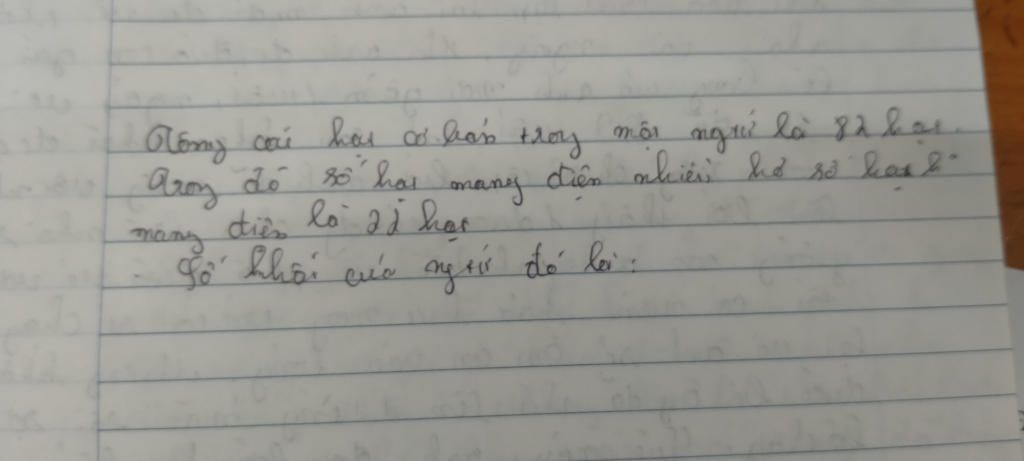 Tổng các hạt cơ bản trong một ngtử là 82 hạt.
Trong đó số hạt mang điện nhiều hơ số hạt k
mang điện là 22 hạt
Số khối của ngtử đó là: